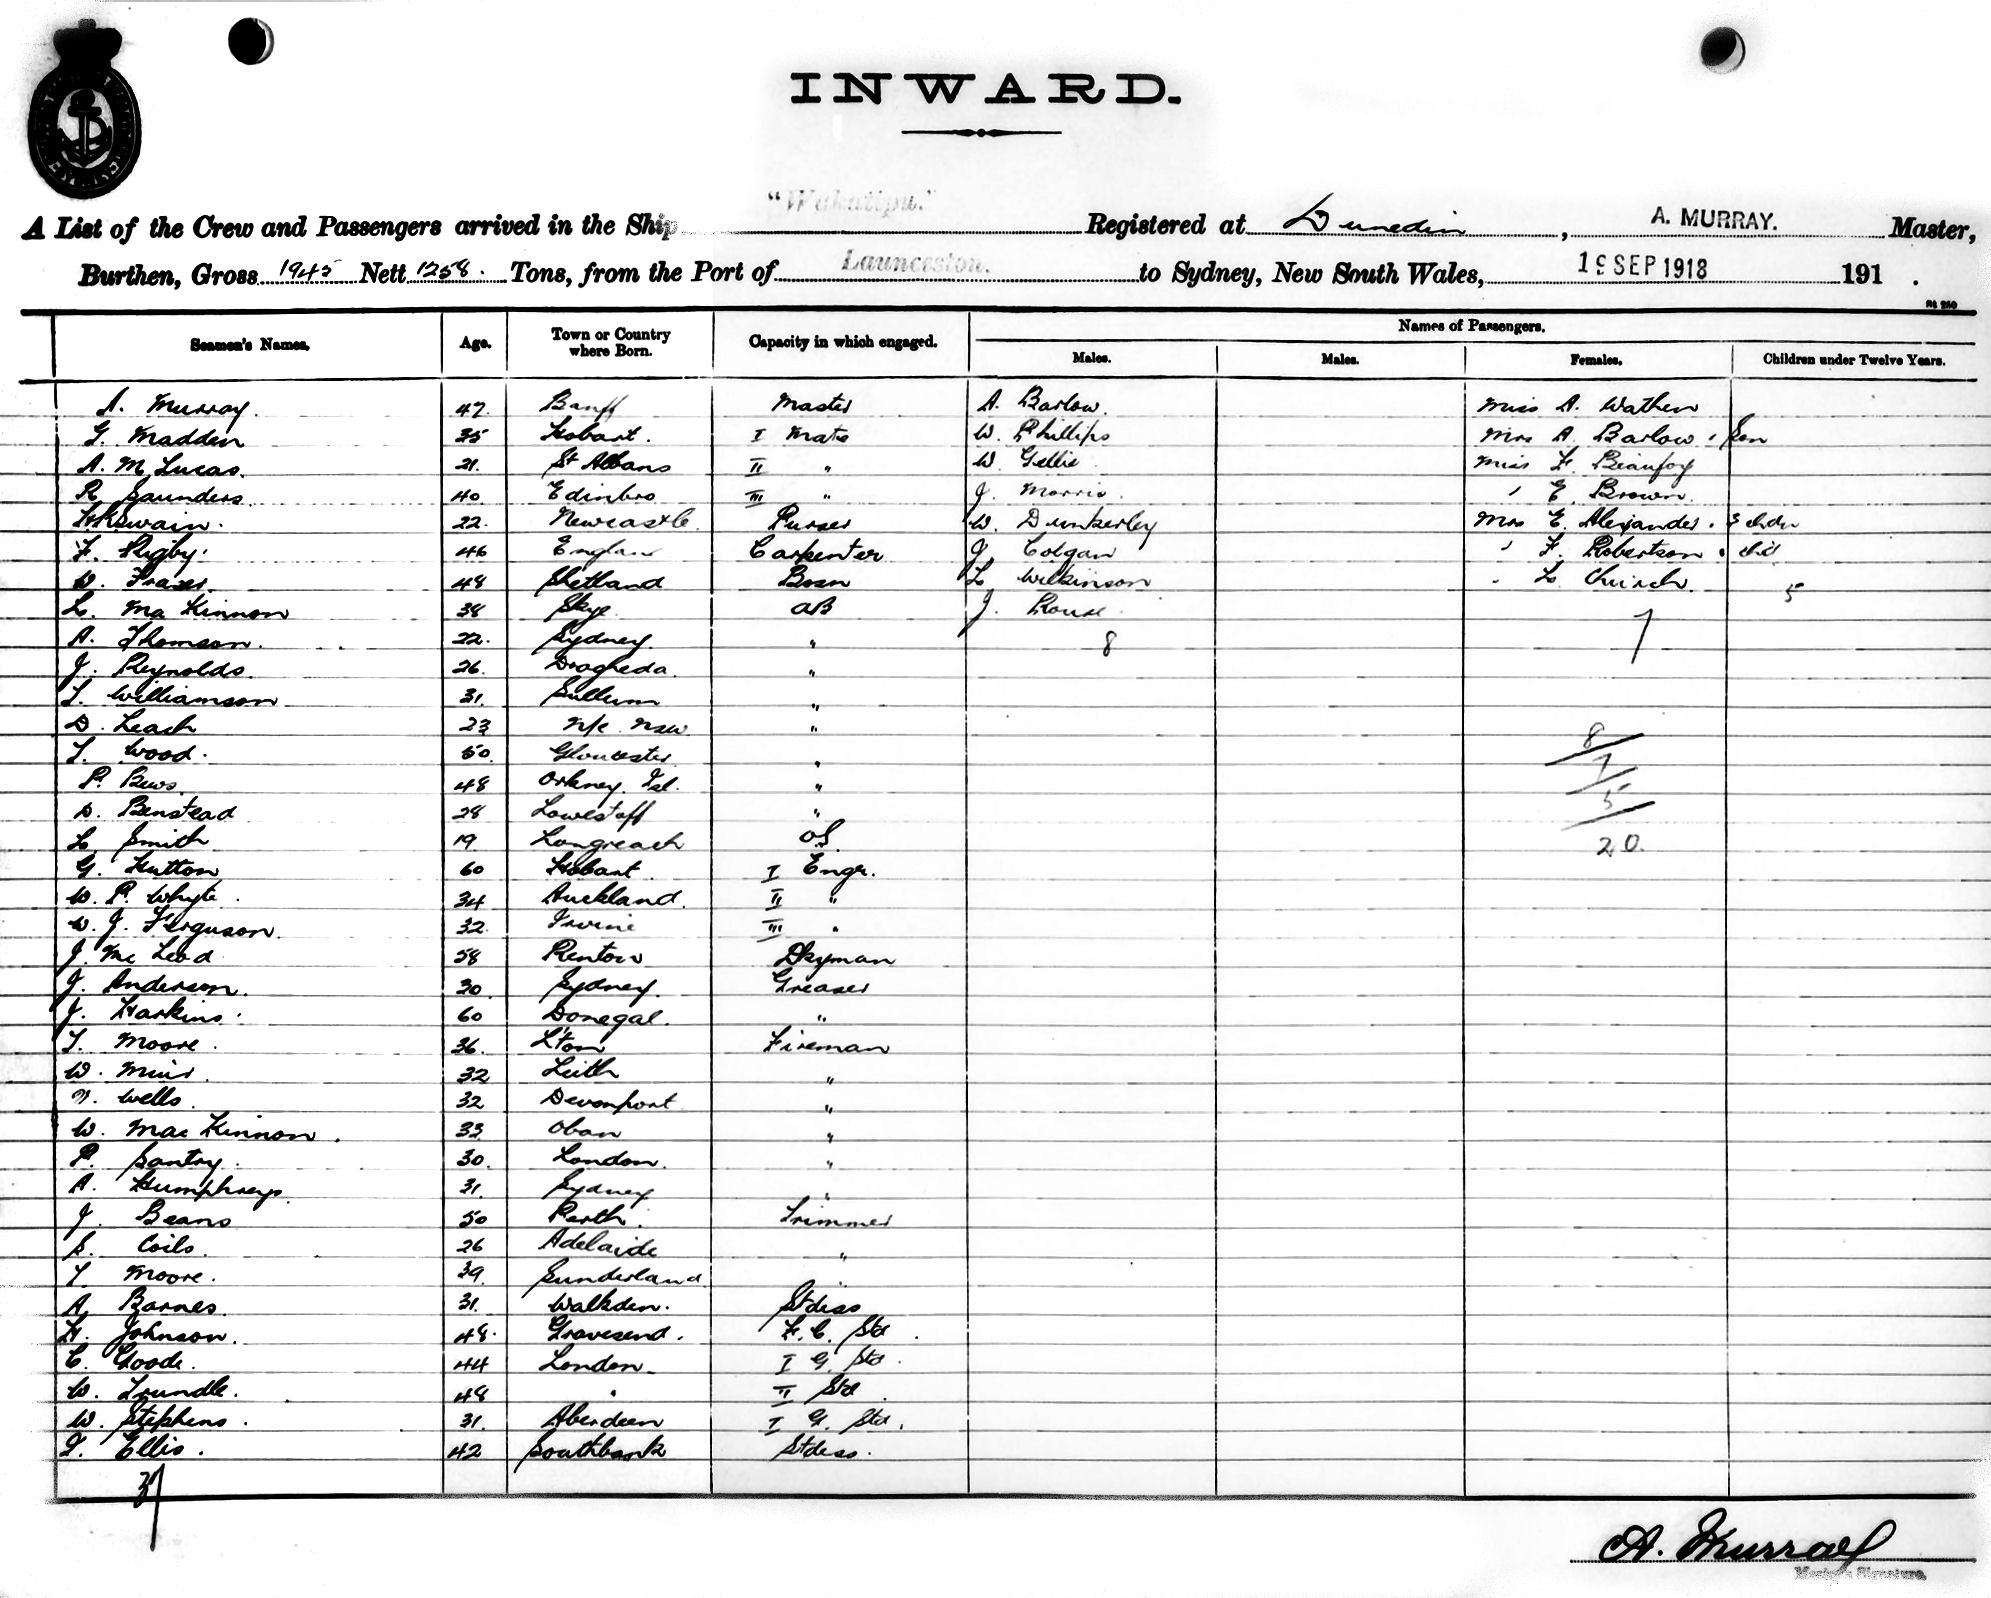 INWARD.
A List of the Crew and Passengers arrived in the Ship "Wakatipu." Registered at Dunedin, A. MURRAY. Master,
Burthen, Gross 1945 Nett 1258. Tons, from the Port of Launceston. to Sydney, New South Wales, 19 SEP 1918 191 .
Names of Passengers.
Seamen's Names. Age. Town or Country where Born. Capacity in which engaged. Males. Males. Females. Children under Twelve Years.
A. Murray. 47. Banff Master A. Barlow. Miss A. Wathen
G. Madden 35 Hobart. I Mate W. Phillips Mrs A. Barlow. Son
A. M. Lucas. 21. St Albans II " W. Gellie Miss F. Beaufoy
R Saunders 40 Edinbro III " J. Morris. " E. Brown.
H K Swain. 22. Newcastle. Purser W. Dunkerley Mrs E. Alexander. 3 chdn
F. Rigby. 46 England Carpenter J. Colgan " F. Robertson. chd
W. Fraser. 48 Shetland Bosn L Wilkinson " L. Church. 5
L. Ma Kinnon 38 Skye. AB J. Rouse 7
A. Thomson. 22. Sydney. " 8
J. Reynolds. 26. Drogheda. "
T. Williamson 31. Sullum "
D. Leach 23 N/c. NSW "
T. Wood. 50. Gloucester. " 8
P. Bews 48 Orkney. Isl. " 7
D. Benstead 28 Lowestoff " 5
L. Smith 19. Longreach O.S. 20.
G. Hutton 60 Hobart I Engr.
W. P. Whyte. 34 Auckland. II "
W. J. Ferguson. 32. Irvine III "
J. Mc Leod 58 Renton Dkyman
J. Anderson. 30. Sydney. Greaser
J. Harkins. 60 Donegal. "
T. Moore. 36. L'ton Fireman
W. Muir. 32 Leith "
Wells 32 Devonport "
W. Mac Kinnon. 33. Oban "
P. Santry. 30. London. "
A. Humphreys. 31. Sydney "
J. Beans 50 Perth. Trimmer
S. Coils. 26 Adelaide "
T. Moore. 39. Sunderland "
A. Barnes. 31. Walkden. Stdess
H. Johnson. 48. Gravesend. F. C. Std.
C. Goode. 44 London. I G. Std.
W. Trundle. 48 " II Std
W. Stephens. 31. Aberdeen I G. Std.
T. Ellis. 42 Southbank Stdess.
37
A. Murray
Master's Signature.